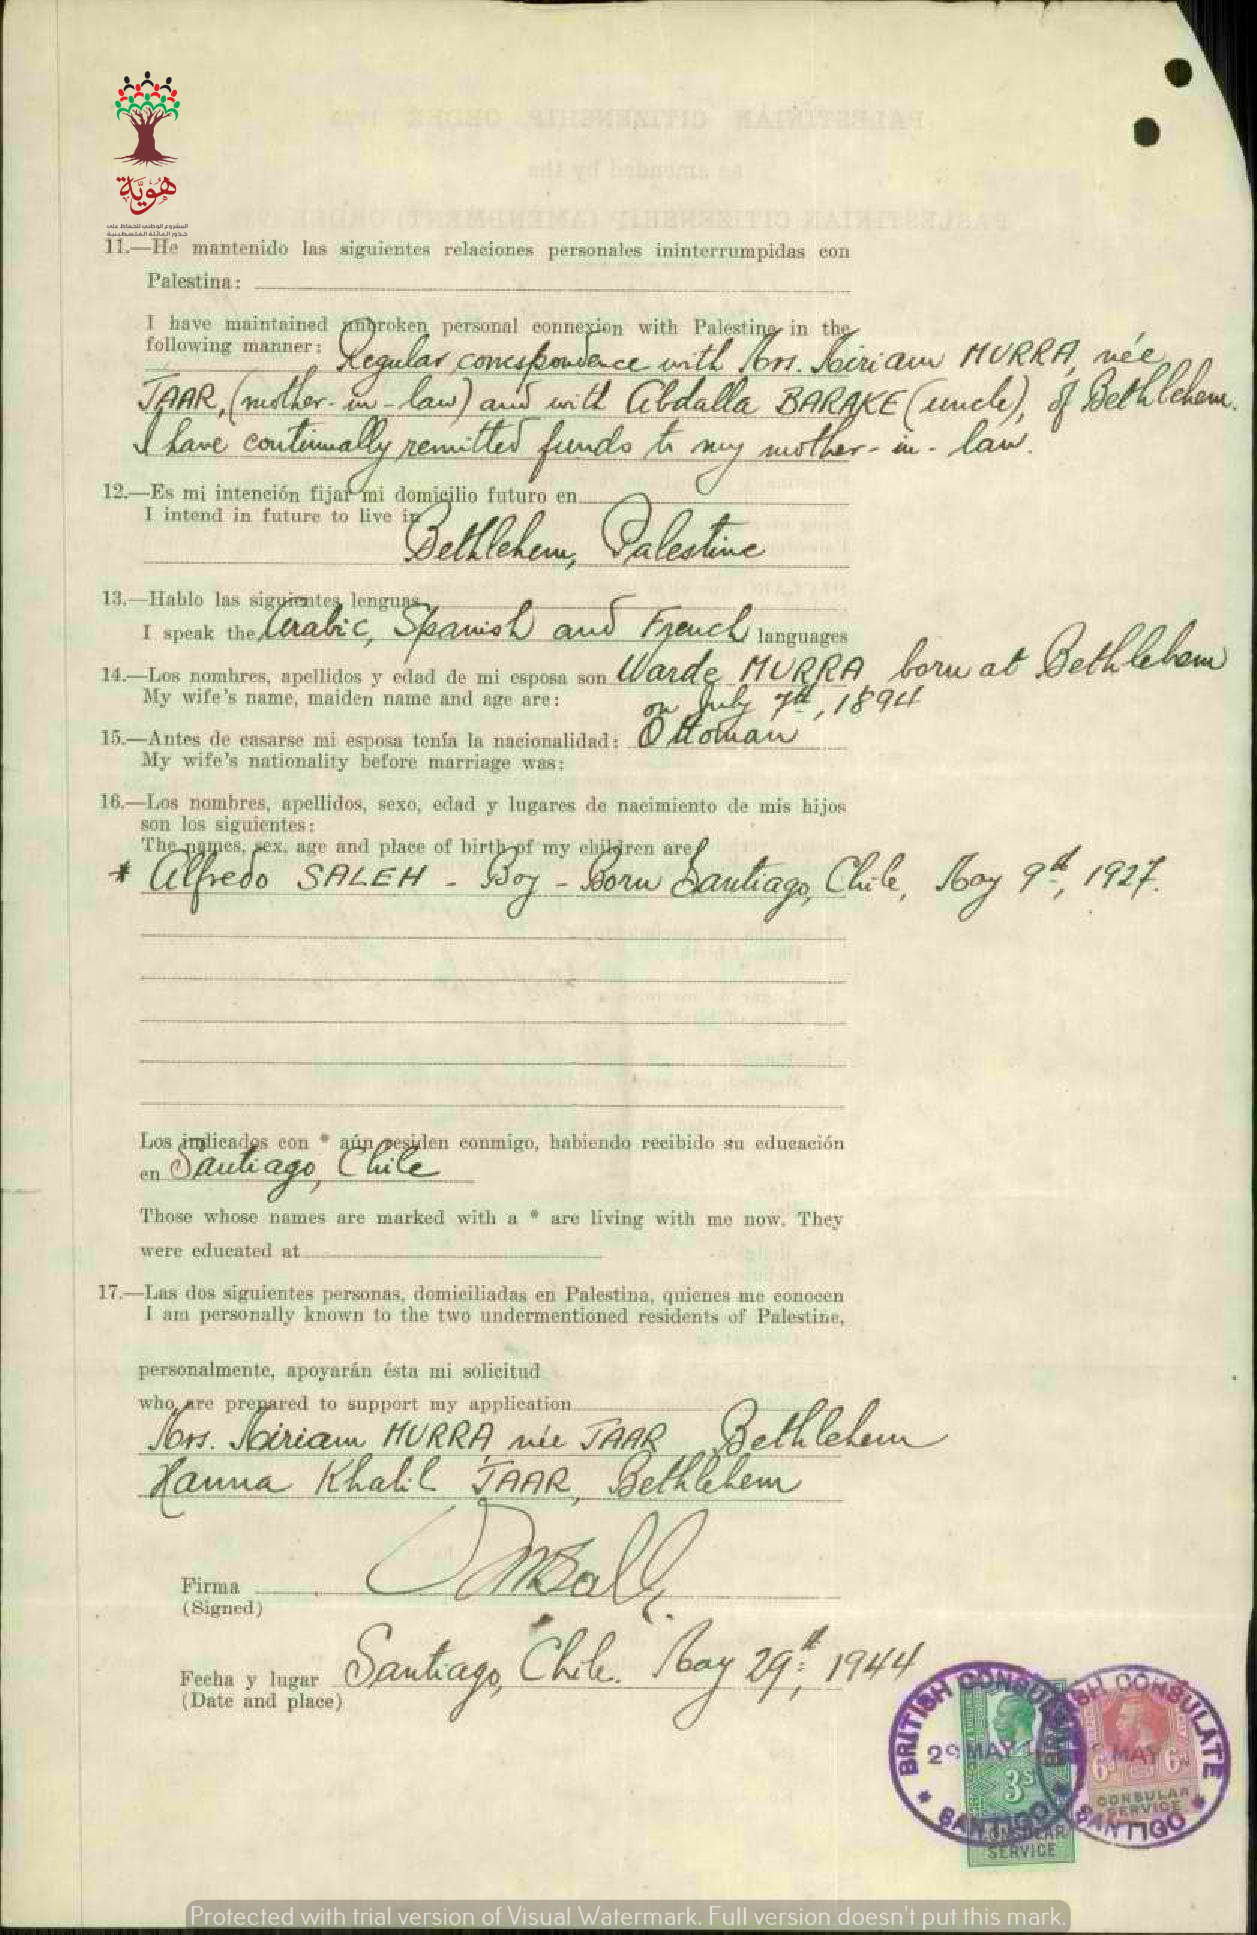 هوية
المشروع الوطني للحفاظ على
جذور العائلة الفلسطينية
PALESTINIAN CITIZENSHIP ORDER
as amended by the
PALESTINIAN CITIZENSHIP (AMENDMENT) ORDER
11.—He mantenido las siguientes relaciones personales ininterrumpidas con
Palestina:
I have maintained unbroken personal connexion with Palestine in the
following manner: Regular correspondence with Mrs. Miriam MURRA, née
JAAR, (mother-in-law) and with Abdalla BARAKE (uncle), of Bethlehem.
I have continually remitted funds to my mother-in-law.
12.—Es mi intención fijar mi domicilio futuro en
I intend in future to live in
Bethlehem, Palestine
13.—Hablo las siguientes lenguas
I speak the Arabic, Spanish and French languages
14.—Los nombres, apellidos y edad de mi esposa son Warde MURRA born at Bethlehem
My wife's name, maiden name and age are: on July 7th, 1894
15.—Antes de casarse mi esposa tenía la nacionalidad: Ottoman
My wife's nationality before marriage was:
16.—Los nombres, apellidos, sexo, edad y lugares de nacimiento de mis hijos
son los siguientes:
The names, sex, age and place of birth of my children are
* Alfredo SALEH - Boy - Born Santiago, Chile, May 9th, 1927.
Los indicados con * aún residen conmigo, habiendo recibido su educación
en Santiago, Chile
Those whose names are marked with a * are living with me now. They
were educated at
17.—Las dos siguientes personas, domiciliadas en Palestina, quienes me conocen
I am personally known to the two undermentioned residents of Palestine,
personalmente, apoyarán ésta mi solicitud
who are prepared to support my application
Mrs. Miriam MURRA née JAAR Bethlehem
Hanna Khalil JAAR, Bethlehem
Firma
(Signed)
Fecha y lugar Santiago, Chile. May 29th, 1944
(Date and place)
BRITISH CONSULATE
29 MAY
3s
SANTIGO
CONSULAR
SERVICE
BRITISH CONSULATE
MAY
6d 6d
CONSULAR
SERVICE
SANTIGO
Protected with trial version of Visual Watermark. Full version doesn't put this mark.